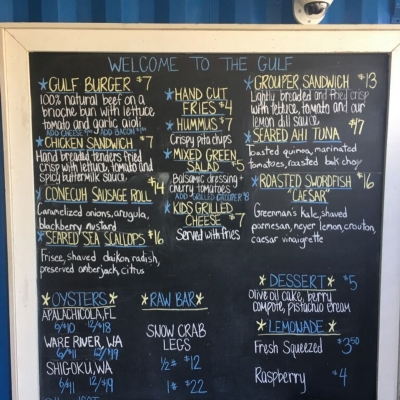 WELCOME TO THE GULF
GULF BURGER $7
100% natural beef on a
brioche bun with lettuce
tomato and garlic aioli
ADD CHEESE ADD BACON
CHICKEN SANDWICH $7
Hand breaded tenders fried
crisp with lettuce, tomato and
spicy buttermilk sauce
CONECUH SAUSAGE ROLL $14
Caramelized onions, arugula,
blackberry mustard
SEARED SEA SCALLOPS $16
Frisee, shaved daikon radish,
preserved amberjack, citrus
HAND CUT
FRIES $4
HUMMUS $7
Crispy pita chips
MIXED GREEN
SALAD $5
Balsamic dressing +
cherry tomatoes
ADD GRILLED GROUPER $8
KIDS GRILLED
CHEESE $7
Served with fries
GROUPER SANDWICH $13
Lightly breaded and fried crisp
with lettuce, tomato and our
lemon dill sauce
SEARED AHI TUNA $17
Toasted quinoa, marinated
tomatoes, roasted bok choy
ROASTED SWORDFISH $16
"CAESAR"
Greenman's kale, shaved
parmesan, meyer lemon, crouton,
caesar vinaigrette
OYSTERS
APALACHICOLA, FL
6/$10 12/$18
WARE RIVER, VA
6/$11 12/$19
SHIGOKU, WA
6/$11 12/$19
RAW BAR
SNOW CRAB
LEGS
1/2# $12
1# $22
DESSERT $5
Olive oil cake, berry
compote, pistachio cream
LEMONADE
Fresh Squeezed $3.50
Raspberry $4